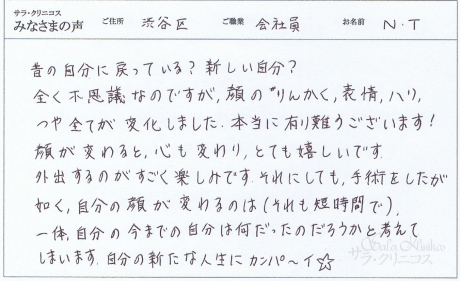 サラ・クリニコス
みなさまの声 ご住所 渋谷区 ご職業 会社員 お名前 N・T
昔の自分に戻っている?新しい自分?
全く不思議なのですが,顔のりんかく,表情,ハリ,
つや全てが変化しました.本当に有り難うございます!
顔が変わると,心も変わり,とても嬉しいです.
外出するのがすごく楽しみです.それにしても,手術をしたが
如く,自分の顔が変わるのは(それも短時間で),
一体,自分の今までの自分は何だったのだろうかと考えて
しまいます.自分の新たな人生にカンパ〜イ☆
サラ・クリニコス